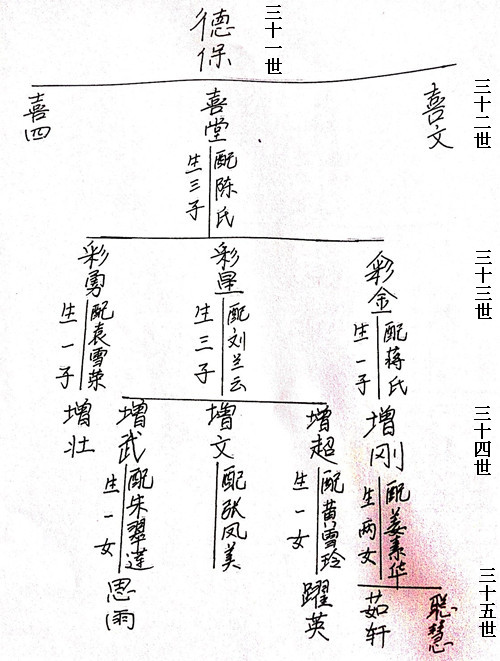 三十一世
德保
三十二世
喜文
喜堂
配陈氏
生三子
喜四
三十三世
彩金
配蒋氏
生一子
彩星
配刘兰云
生三子
彩勇
配袁雪荣
生一子
三十四世
增刚
配姜素华
生两女
增超
配黄雪玲
生一女
增文
配张凤美
增武
配朱翠莲
生一女
增壮
三十五世
聪慧
茹轩
躍英
思雨